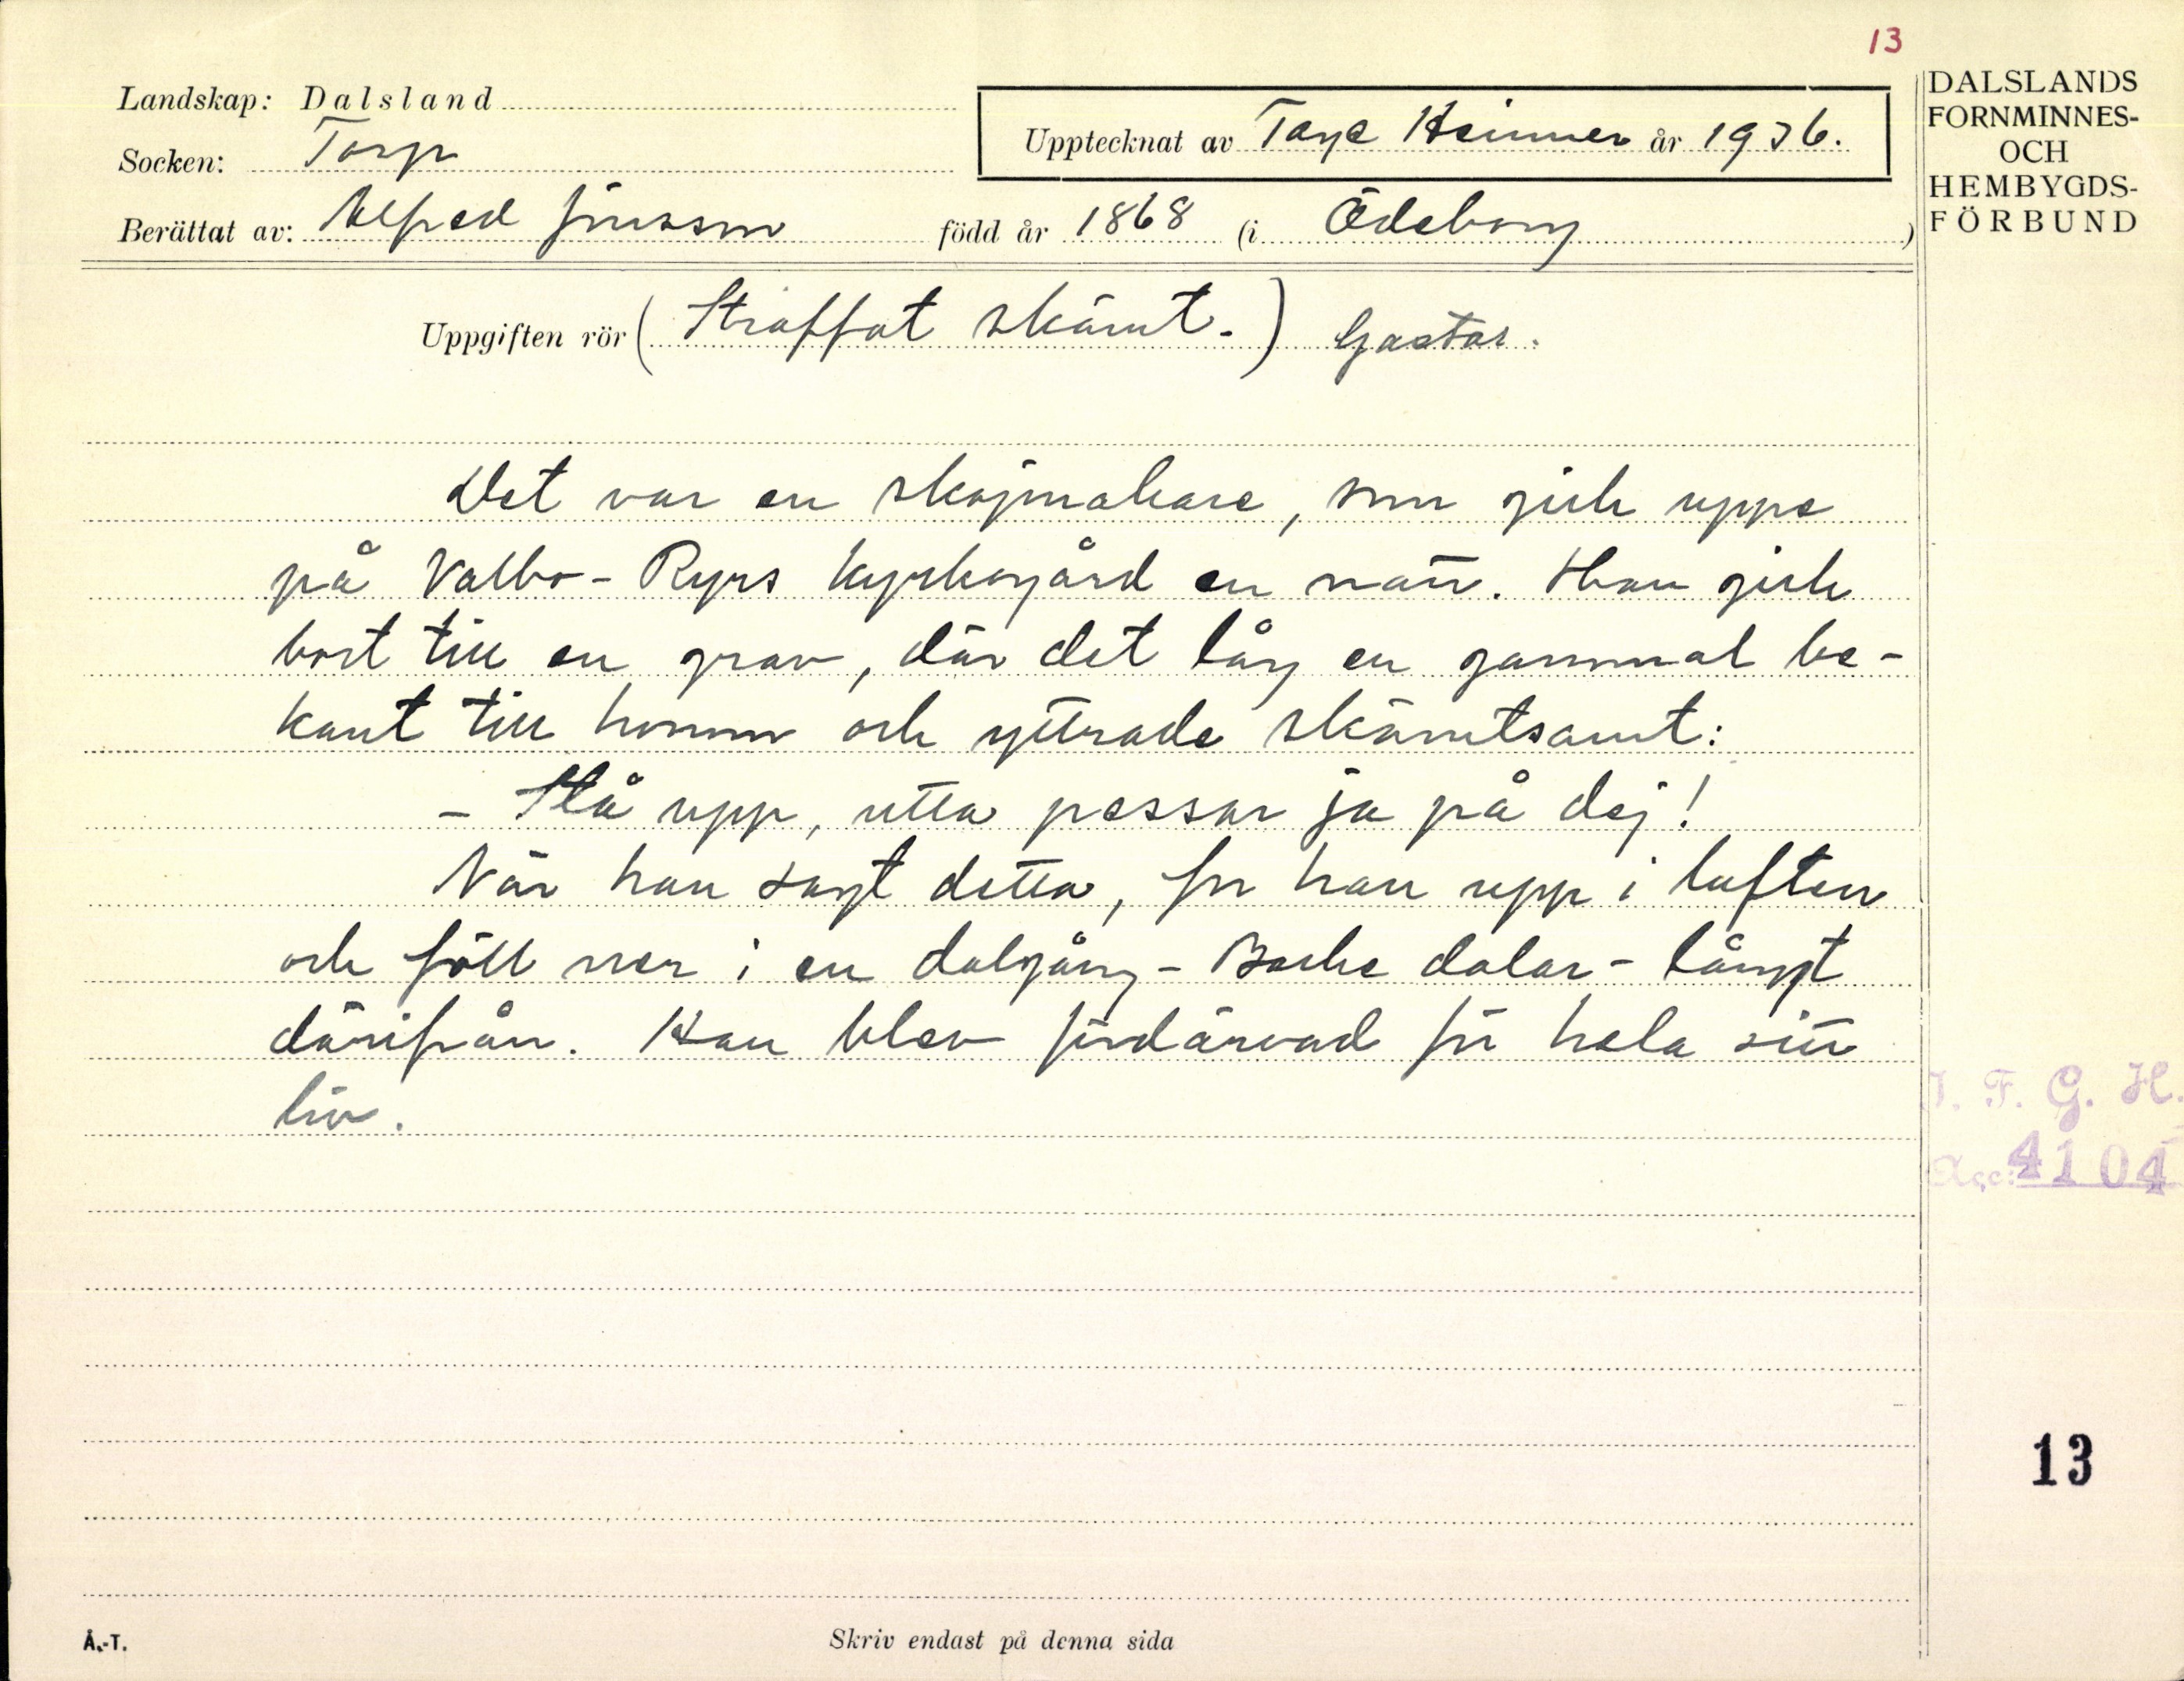 13
Landskap: Dalsland
Socken: Torp
Upptecknat av Tage Heimer år 1936.
Berättat av: Alfred Jonsson född år 1868 (i Ödeborg)
DALSLANDS
FORNMINNES-
OCH
HEMBYGDS-
FÖRBUND
Uppgiften rör (Straffat skämt.) Gastar.
Det var en skojmakare, som gick uppe
på Valbo-Ryrs kyrkogård en natt. Han gick
bort till en grav, där det låg en gammal be-
kant till honom och yttrade skämtsamt:
- Stå upp, utta pessar ja på dej!
När han sagt detta, for han upp i luften
och föll ner i en dalgång - dalar - långt
därifrån. Han blev fördärvad för hela sitt
liv.
I. F. G. H.
Acc: 4104
13
Å.-T.
Skriv endast på denna sida